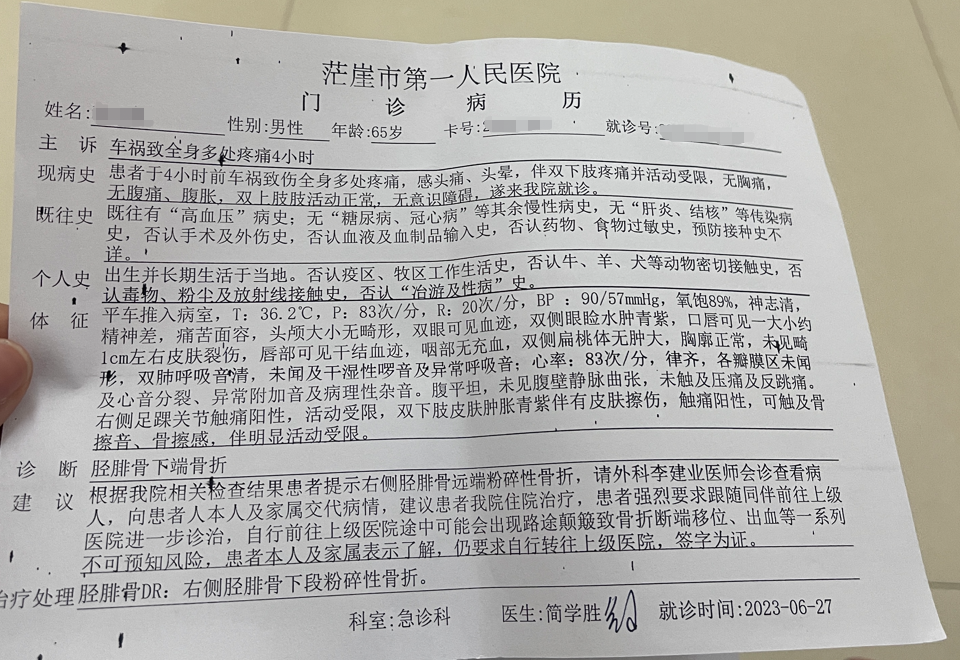 茫崖市第一人民医院
门 诊 病 历
姓名: 性别:男性 年龄:65岁 卡号: 就诊号:
主 诉 车祸致全身多处疼痛4小时
现病史 患者于4小时前车祸致伤全身多处疼痛，感头痛、头晕，伴双下肢疼痛并活动受限，无胸痛，
无腹痛、腹胀，双上肢肢活动正常，无意识障碍，遂来我院就诊。
既往史 既往有“高血压”病史；无“糖尿病、冠心病”等其余慢性病史，无“肝炎、结核”等传染病
史，否认手术及外伤史，否认血液及血制品输入史，否认药物、食物过敏史，预防接种史不
详。
个人史 出生并长期生活于当地。否认疫区、牧区工作生活史，否认牛、羊、犬等动物密切接触史，否
认毒物、粉尘及放射线接触史，否认“冶游及性病”史。
体 征 平车推入病室，T：36.2℃，P：83次/分，R：20次/分，BP ：90/57mmHg，氧饱89%，神志清，
精神差，痛苦面容，头颅大小无畸形，双眼可见血迹，双侧眼睑水肿青紫，口唇可见一大小约
1cm左右皮肤裂伤，唇部可见干结血迹，咽部无充血，双侧扁桃体无肿大，胸廓正常，未见畸
形，双肺呼吸音清，未闻及干湿性啰音及异常呼吸音；心率：83次/分，律齐，各瓣膜区未闻
及心音分裂、异常附加音及病理性杂音。腹平坦，未见腹壁静脉曲张，未触及压痛及反跳痛。
右侧足踝关节触痛阳性，活动受限，双下肢皮肤肿胀青紫伴有皮肤擦伤，触痛阳性，可触及骨
擦音、骨擦感，伴明显活动受限。
诊 断 胫腓骨下端骨折
建 议 根据我院相关检查结果患者提示右侧胫腓骨远端粉碎性骨折，请外科李建业医师会诊查看病
人，向患者人本人及家属交代病情，建议患者我院住院治疗，患者强烈要求跟随同伴前往上级
医院进一步诊治，自行前往上级医院途中可能会出现路途颠簸致骨折断端移位、出血等一系列
不可预知风险，患者本人及家属表示了解，仍要求自行转往上级医院，签字为证。
治疗处理 胫腓骨DR：右侧胫腓骨下段粉碎性骨折。
科室:急诊科 医生:简学胜 就诊时间:2023-06-27